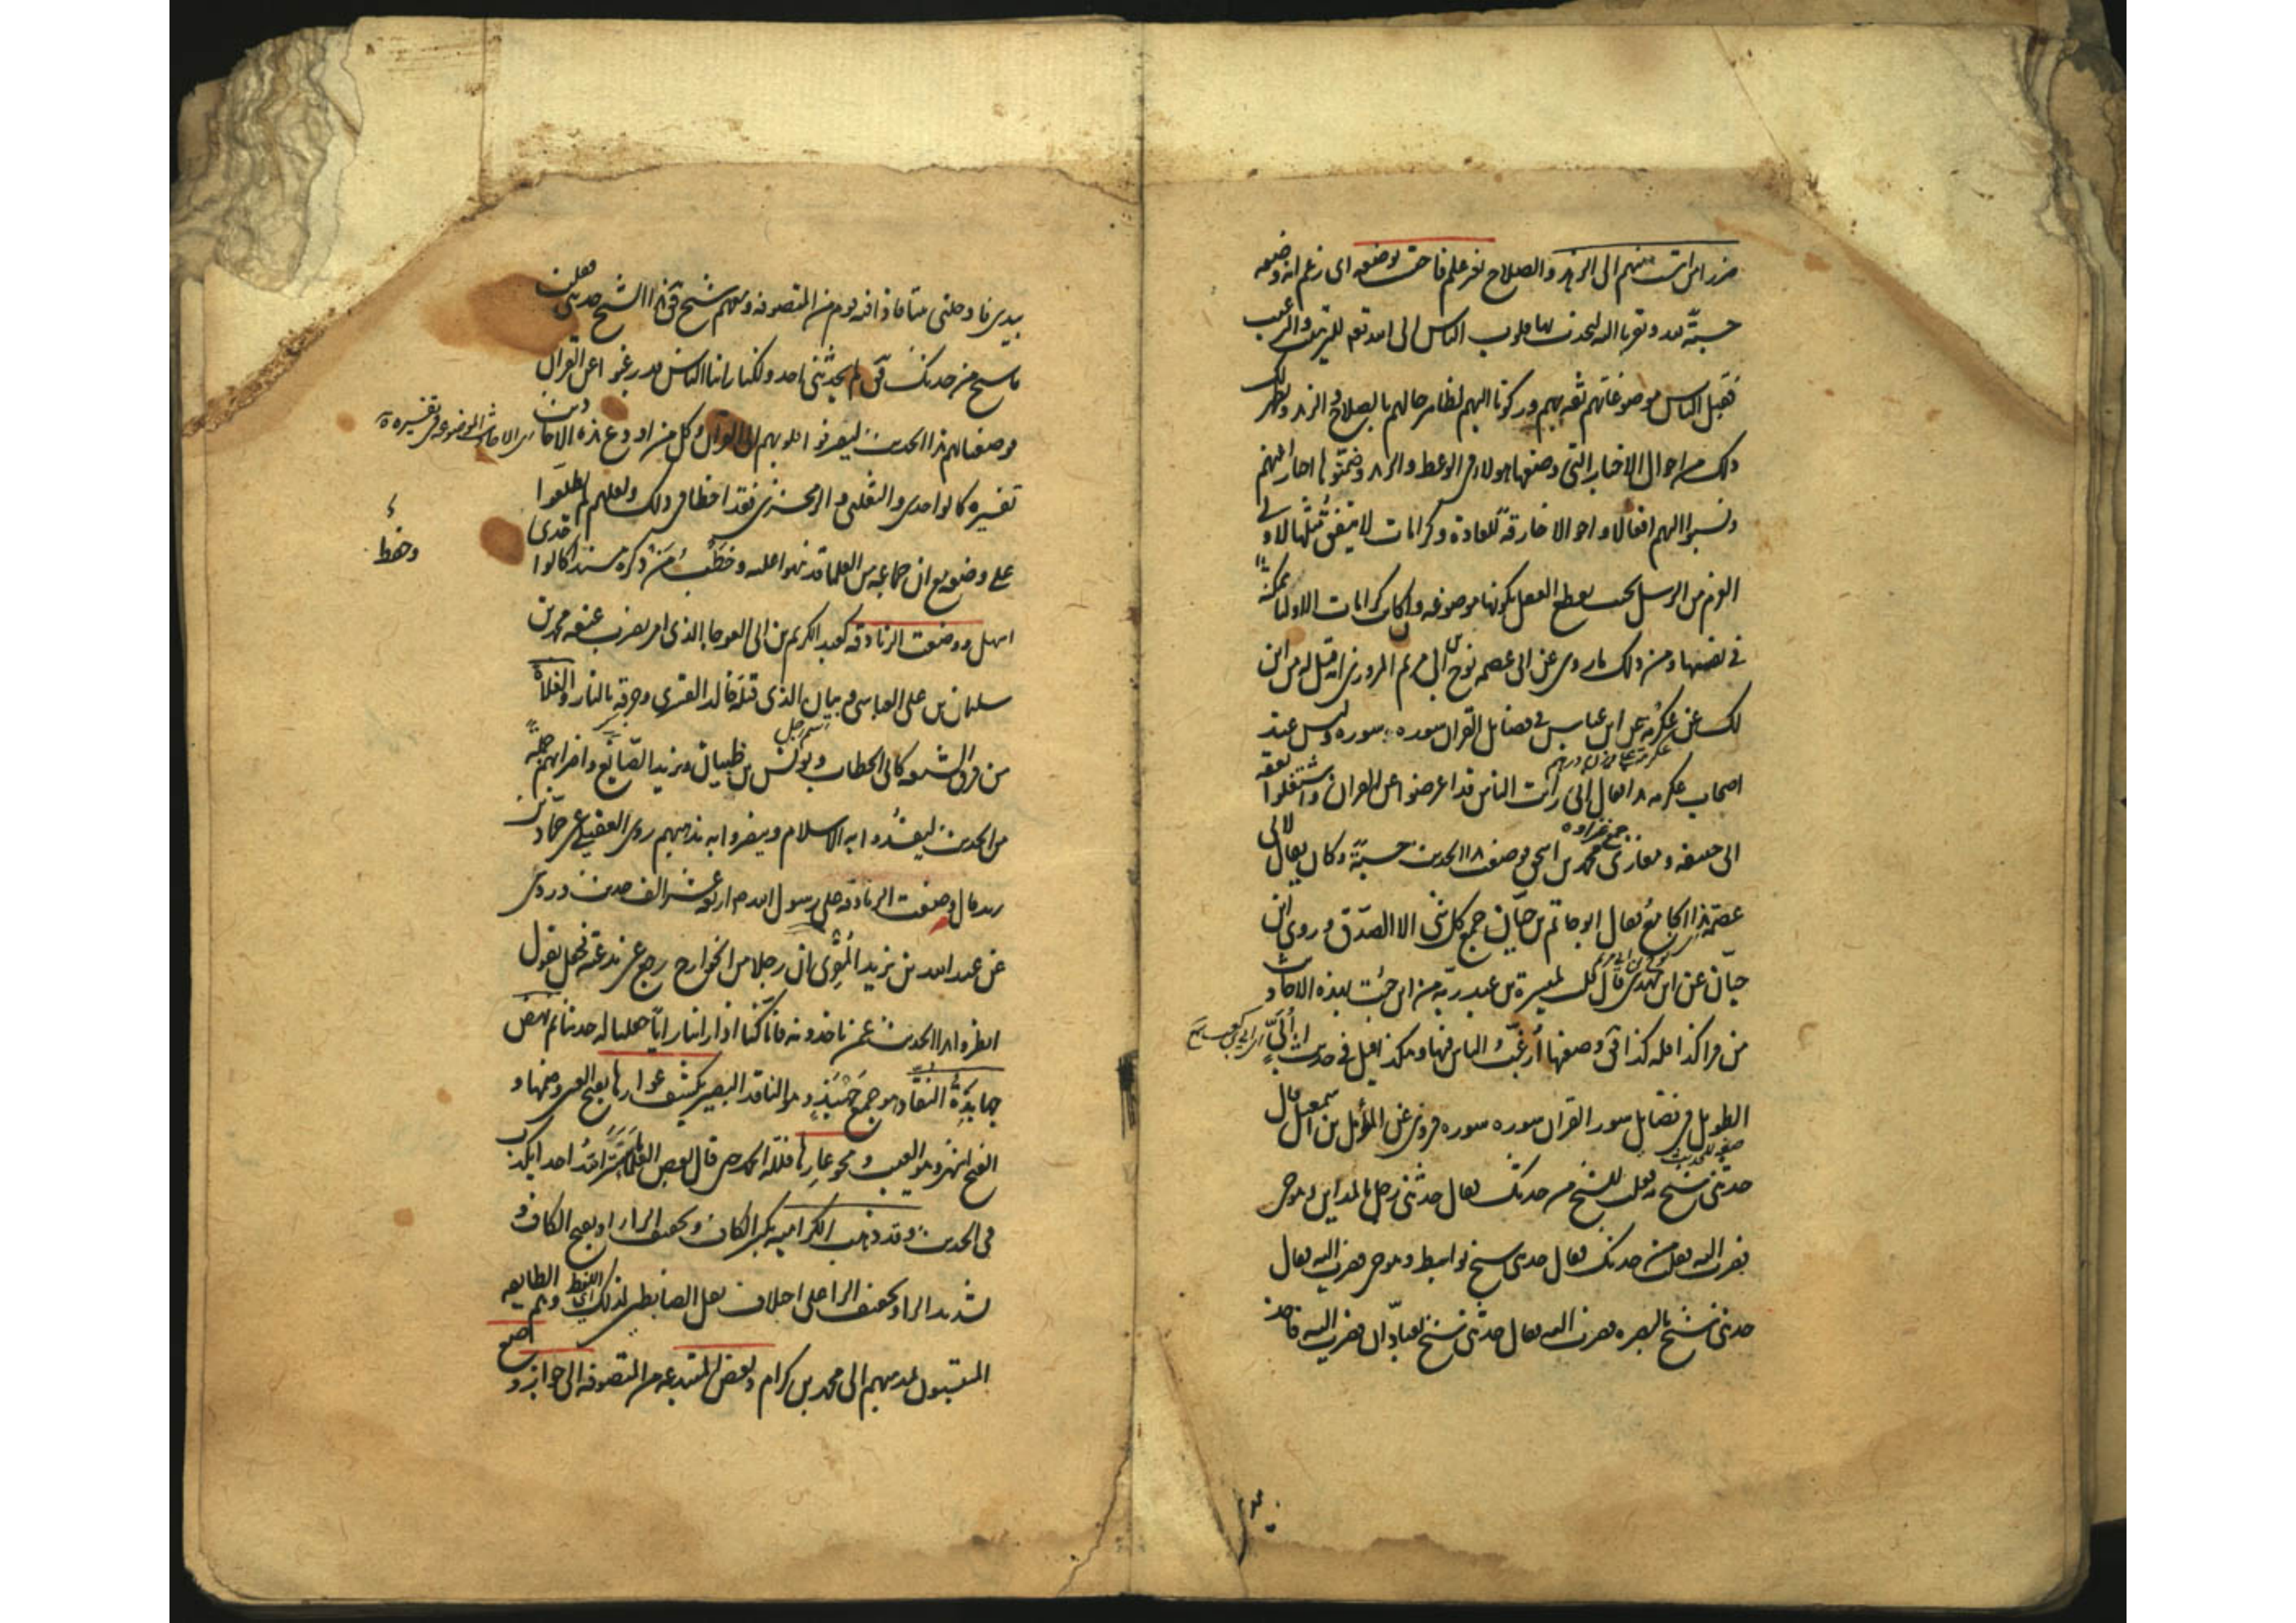 ضررا من انتسب منهم الى الزهد والصلاح بغير علم فاحتسب بوضعه اى زعم انه وضعه
حسبة لله وتقربا اليه ليجذب بها قلوب الناس الى الله تعم بالترغيب والترهيب
فقبل الناس موضوعاتهم ثقة بهم وركونا اليهم لظاهر حالهم بالصلاح والزهد ويظهر لك
ذلك من احوال الاخبار التى وضعها هولاء فى الوعظ والزهد وضمنوها اخبارا عنهم
ونسبوا اليهم افعالا واحوالا خارقة للعادة وكرامات لا يتفق مثلها لاولى
العزم من الرسل بحيث يقطع العقل بكونها موضوعة وان كانت كرامات الاولياء ممكنة
فى نفسها ومن ذلك ما روى عن ابى عصمه نوح بن ابى مريم المروزى انه قيل له من اين
لك عن عكرمة عن ابن عباس فى فضايل القران سوره سوره وليس عند
اصحاب عكرمه هذا فقال انى رايت الناس قد اعرضوا عن القران واشتغلوا بفقه
ابى حنيفه ومغازى محمد بن اسحق فوضعت هذا الحديث حسبة وكان يقال لابى
عصمة هذا الجامع فقال ابو حاتم بن حبان جمع كل شى الا الصدق وروى ابن
حبان عن ابن مهدى قال قلت لميسرة بن عبد ربه من اين جئت بهذه الاحاديث
من قرا كذا فله كذا قال وضعتها ارغب الناس فيها وهكذا قيل فى حديث ابى
الطويل فى فضايل سور القران سوره سوره فروى عن المؤمل بن اسمعيل قال
حدثنى شيخ به فقلت للشيخ من حدثك فقال حدثنى رجل بالمداين وهو حى
فصرت اليه فقلت من حدثك فقال حدثنى شيخ بواسط وهو حى فصرت اليه فقال
حدثنى شيخ بالبصره فصرت اليه فقال حدثنى شيخ بعبادان فصرت اليه فاخذ
بيدى فادخلنى بيتا فاذا فيه قوم من المتصوفه ومعهم شيخ فقال هذا الشيخ حدثنى فقلت
يا شيخ من حدثك فقال لم يحدثنى احد ولكنا راينا الناس قد رغبوا عن القران
فوضعنا لهم هذا الحديث ليصرفوا قلوبهم الى القران وكل من اودع هذه الاحاديث
تفسيره كالواحدى والثعلبى والزمخشرى فقد اخطا فى ذلك ولعلهم لم يطلعوا
على وضعه مع ان جماعه من العلما قد نبهوا عليه وخطب من ذكره مسندا كالواحدى
اسهل ووضعت الزنادقه كعبد الكريم بن ابى العوجا الذى امر بضرب عنقه محمد بن
سليمان بن على العباسى وبيان الذى قتله خالد القسرى وحرقه بالنار والغلاة
من فرق الشيعه كابى الخطاب ويونس بن ظبيان ويزيد الصايغ واضرابهم جملة
من الحديث ليفسدوا به الاسلام وينصروا به مذهبهم روى العقيلى عن حماد بن
زيد قال وضعت الزنادقه على رسول الله ص اربعة عشر الف حديث وروى
عن عبد الله بن يزيد المقرى ان رجلا من الخوارج رجع عن بدعته فجعل يقول
انظروا هذا الحديث عمن تاخذونه فانا كنا اذا راينا رايا جعلنا له حديثا ثم نهض
جهابذة النقاد هو جمع جهبذ وهو الناقد البصير بكشف عوارها بفتح العين وضمها و
الفتح اشهر وهو العيب ومحو عارها فلله الحمد حتى قال بعض العلماء ما ستر الله احدا يكذب
فى الحديث وقد ذهب الكراميه بكسر الكاف وتخفيف الراء او بفتح الكاف و
تشديد الراء او تخفيف الراء على اختلاف نقل الضابطين لذلك اللفظ وهم الطايفه
المنتسبون لمذهبهم الى محمد بن كرام وبعض المبتدعه من المتصوفه الى جواز وضع